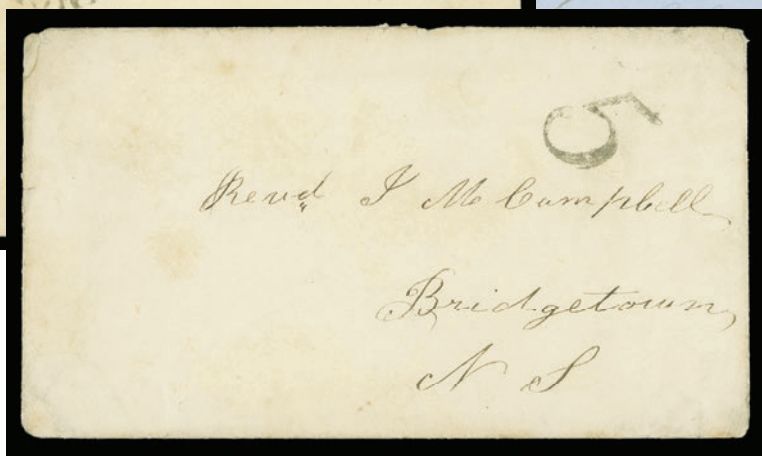 5
Revd. J M Campbell
Bridgetown,
N S